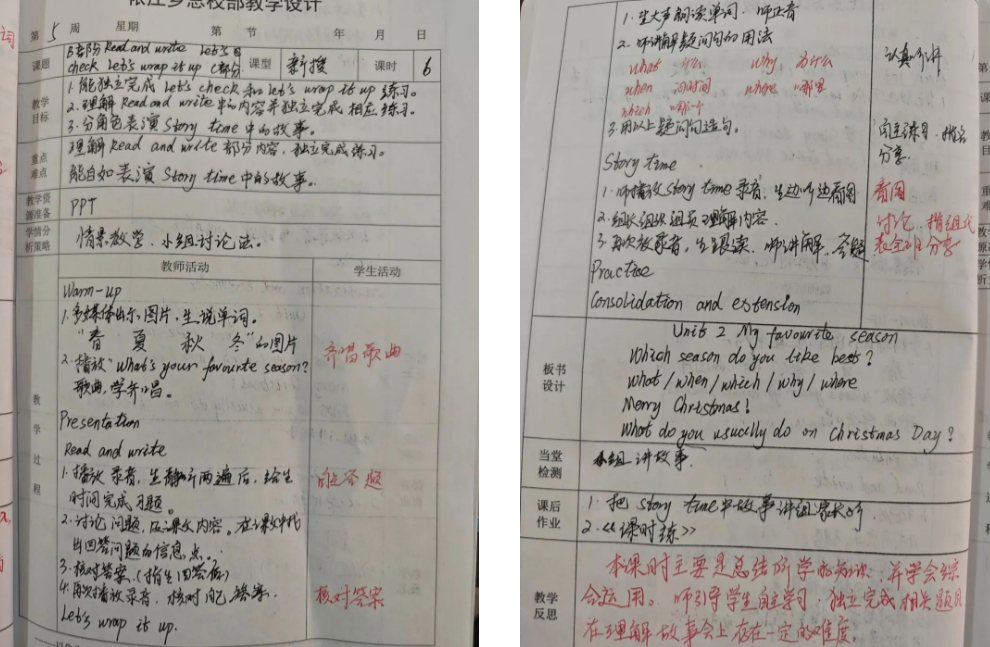 张江乡总校部教学设计
第 5 周 星期 第 节 年 月 日
课题
B部分 Read and write Let's
check Let's wrap it up C部分
课型
新授
课时
6
教学
目标
1. 能独立完成 Let's check 和 Let's wrap it up 练习。
2. 理解 Read and write 中的内容并独立完成相应练习。
3. 分角色表演 Story time 中的故事。
重点
难点
理解 Read and write 部分内容，独立完成练习。
能自如表演 Story time 中的故事。
教学资
源准备
PPT
学情分
析策略
情景教学、小组讨论法。
教师活动
学生活动
教
学
过
程
Warm-up
1. 多媒体出示图片，生说单词。
"春 夏 秋 冬"的图片
2. 播放"What's your favourite season?
歌曲，学齐唱。
齐唱歌曲
Presentation
Read and write
1. 播放录音，生静听两遍后，给生
时间完成习题。
自主答题
2. 讨论问题，及课文内容。在课文中找
出回答问题的信息点。
3. 核对答案。(指生回答后)
4. 再次播放录音，核对自己答案。
核对答案
Let's wrap it up.
1. 生大声朗读单词，师正音
2. 师讲解疑问句的用法
认真听讲
what 什么 why 为什么
when 问时间 where 哪里
which 哪一个
3. 用以上疑问句造句。
自主练习，指名
分享.
Story time
1. 师播放 Story time 录音，生边听边看图
看图
2. 组长组织组员理解内容.
讨论，指组代
表全班分享
3. 再次放录音，生跟读，师讲解，答疑
Practice
Consolidation and extension
板书
设计
Unit 2 My favourite season
Which season do you like best?
What / when / which / why / where
Merry Christmas!
What do you usually do on Christmas Day?
当堂
检测
小组讲故事.
课后
作业
1. 把 Story time 中故事讲给家长听
2. 《课时练》
教学
反思
本课时主要是总结所学的知识，并学会综
合运用。师引导学生自主学习，独立完成相关题目
在理解故事会上存在一定的难度。